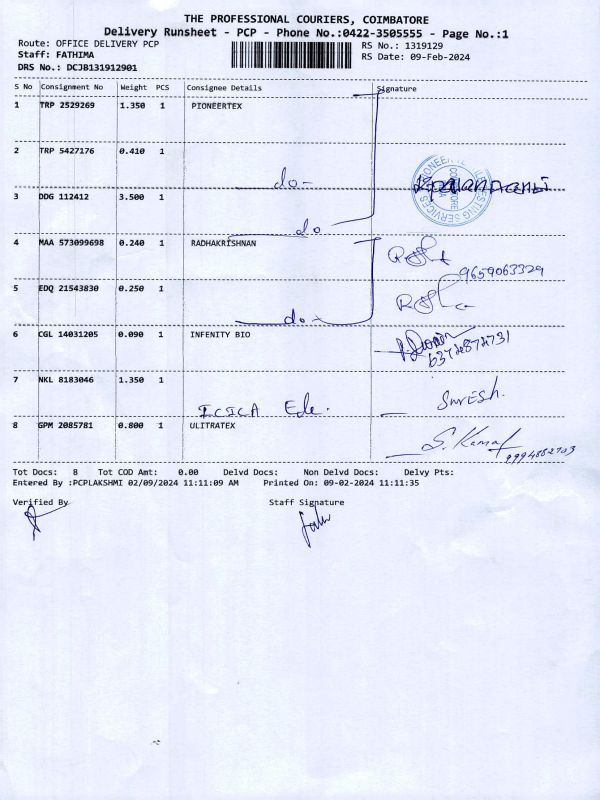 THE PROFESSIONAL COURIERS, COIMBATORE
Delivery Runsheet - PCP - Phone No.:0422-3505555 - Page No.:1
Route: OFFICE DELIVERY PCP
RS No.: 1319129
Staff: FATHIMA
RS Date: 09-Feb-2024
DRS No.: DCJB131912901
S No Consignment No Weight PCS Consignee Details Signature
1 TRP 2529269 1.350 1 PIONEERTEX
2 TRP 5427176 0.410 1
do-
3 DDG 112412 3.500 1
do
4 MAA 573099698 0.240 1 RADHAKRISHNAN
9659063329
5 EDQ 21543830 0.250 1
do-
6 CGL 14031205 0.090 1 INFENITY BIO
7 NKL 8183046 1.350 1
Suresh.
8 GPM 2085781 0.800 1 ULITRATEX
S. Kamal
Tot Docs: 8 Tot COD Amt: 0.00 Delvd Docs: Non Delvd Docs: Delvy Pts:
Entered By :PCPLAKSHMI 02/09/2024 11:11:09 AM Printed On: 09-02-2024 11:11:35
Verified By Staff Signature